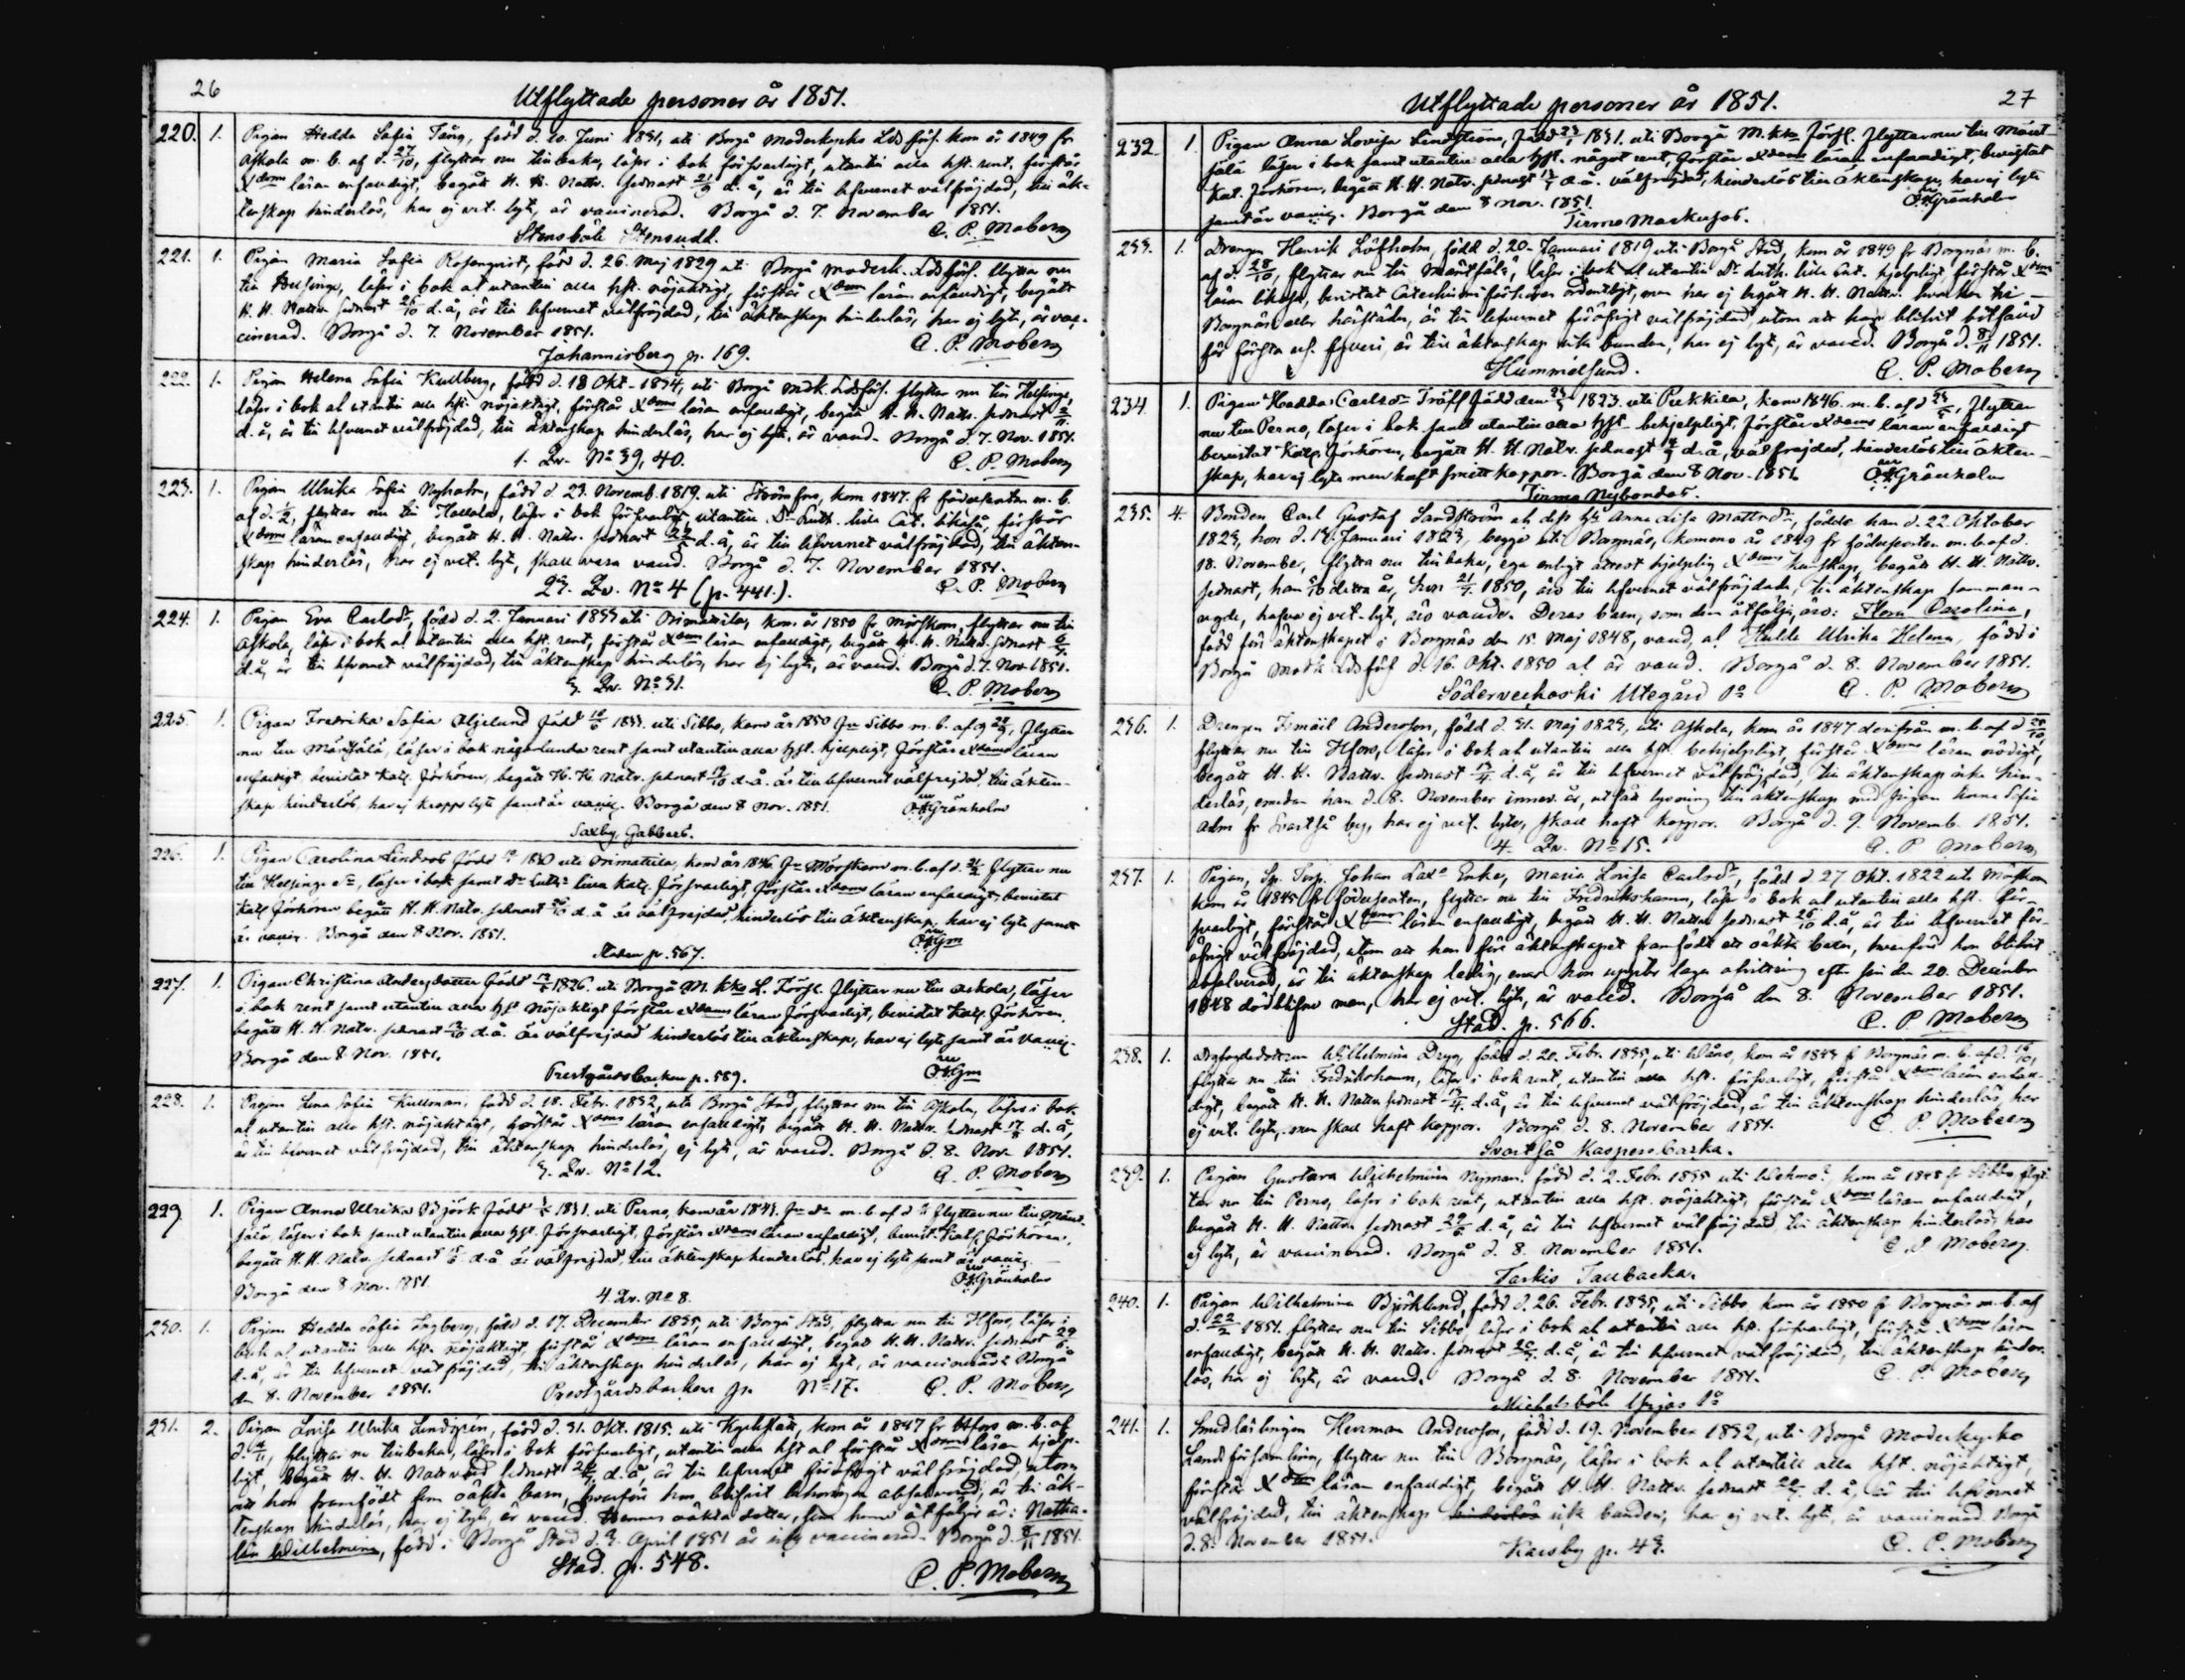 26
Utflyttade personer år 1851.
220. 1. Pigan Hedda Sofia Tång, född d. 20. Juni 1831, uti Borgå Moderkyrko Lds förs. kom år 1849 fr
Askola m. b. af d. 27/10, flyttar nu tillbaka, läser i bok försvarligt, utantill alla hst. rent, förstår
Xdoms läran enfaldigt, begått H. H. Nattv. sednast 21/9 d. å, är till lefvernet välfräjdad, till äk-
tenskap hinderlös, har ej vet. lyte, är vaccinerad. Borgå d. 7. November 1851.
Stensböle Stensudd. C. P. Moberg
221. 1. Pigan Maria Sofia Rosenqvist, född d. 26. Maj 1829 uti Borgå moderk. Lds förs. flyttar nu
till Helsinge, läser i bok at utantill alla hst. nöjaktigt, förstår Xdoms läran enfaldigt, begått
H. H. Nattv. sednast 26/10 d. å, är till lefvernet välfräjdad, till äktenskap hinderlös, har ej lyte, är vac-
cinerad. Borgå d. 7. November 1851. C. P. Moberg
Johannisberg p. 169.
222. 1. Pigan Helena Sofia Kullberg, född d. 18 Okt. 1834, uti Borgå mdk. Lds förs. flyttar nu till Helsinge,
läser i bok at utantill alla hst. nöjaktigt, förstår Xdoms läran enfaldigt, begått H. H. Nattv. sednast
d. å, är till lefvernet välfräjdad, till äktenskap hinderlös, har ej lyte, är vaccd. Borgå d. 7. Nov. 1851.
1. Qv. No 39, 40. C. P. Moberg
223. 1. Pigan Ulrika Sofia Nyholm, född d 23. Novemb. 1819. uti Strömfors, kom 1847. fr födelseorten m. b.
af d. 1/2, flyttar nu till Hollola, läser i bok försvarligt, utantill Dr Luth. lilla Cat. likaså, förstår
Xdoms läran enfaldigt, begått H. H. Nattv. sednast d. å, är till lefvernet välfräjdad, till äkten-
skap hinderlös, har ej vet. lyte, skall vara vaccd. Borgå d. 7. November 1851.
2. Qv. No 4 (p. 441). C. P. Moberg
224. 1. Pigan Eva Carlsdr, född d. 2. Januari 1833 uti Orimattila, kom år 1850 fr Mörskom, flyttar nu till
Askola, läser i bok at utantill alla hst. rent, förstår Xdoms läran enfaldigt, begått H. H. Nattv. sednast
d. å, är till lefvernet välfräjdad, till äktenskap hinderlös, har ej lyte, är vaccd. Borgå d. 7. Nov. 1851.
3. Qv. No 31. C. P. Moberg
225. 1. Pigan Fredrika Sofia född 1833. uti Sibbo, kom år 1850 fr Sibbo m. b. af d, flyttar
nu till Mäntsälä, läser i bok någorlunda rent samt utantill alla hst. hjelpligt, förstår Xdoms läran
enfaldigt, bevistat Kat. förhören, begått H. H. Nattv. sednast 19/10 d. å. är till lefvernet välfrejdad, till äkten-
skap hinderlös, har ej kropps lyte samt är vaccin. Borgå den 8 Nov. 1851. Grönholm
Saxby, Gabbers.
226. 1. Pigan Carolina Lindroos född 1830 uti Orimattila, kom år 1846 fr Mörskom m. b. af d. flyttar nu
till Helsinge, läser i bok samt Dr Luth. lilla Kat. försvarligt, förstår Xdoms läran enfaldigt, bevistat
Kat. förhören begått H. H. Nattv. sednast d. å är välfrejdad, hinderlös till äktenskap, har ej lyte samt
är vaccin. Borgå den 8 Nov. 1851.
Staden p. 567.
227. 1. Pigan Christina Andersdotter född 1826. uti Borgå M. kko L. Förs. flyttar nu till Askola, läser
i bok rent samt utantill alla hst nöjaktigt förstår Xdoms läran försvarligt, bevistat Kat. förhören
begått H. H. Nattv. sednast d. å. är välfrejdad hinderlös till äktenskap, har ej lyte samt är vaccin.
Borgå den 8 Nov. 1851.
Prestgårdsbacken p. 589.
228. 1. Pigan Lena Sofia Kullman, född d. 18. Febr. 1832, uti Borgå Stad, flyttar nu till Askola, läser i bok
at utantill alla hst. nöjaktigt, förstår Xdoms läran enfaldigt, begått H. H. Nattv. sednast 17/8 d. å,
är till lefvernet välfräjdad, till äktenskap hinderlös, ej lyte, är vaccd. Borgå d. 8. Nov. 1851.
3. Qv. No 12. C. P. Moberg
229 1. Pigan Anna Ulrika Björk född 1831. uti Perno, kom år 1843. m. b. af d flyttar nu till Mänt-
sälä, läser i bok samt utantill alla hst. försvarligt, förstår Xdoms läran enfaldigt, bevist. Kat. förhören,
begått H. H. Nattv. sednast d. å är välfrejdad, till äktenskap hinderlös, har ej lyte samt är vaccin.
Borgå den 8 Nov. 1851. Grönholm
4. Qv. No 8.
230. 1. Pigan Hedda Sofia Ingberg, född d. 17. December 1835, uti Borgå Stad, flyttar nu till Hfors, läser i
bok at utantill alla hst. nöjaktigt, förstår Xdoms läran enfaldigt, begått H. H. Nattv. sednast 29/6
d. å, är till lefvernet välfräjdad, till äktenskap hinderlös, har ej lyte, är vaccinerad. Borgå
den 8. November 1851. Prestgårdsbacken p. No 17. C. P. Moberg
231. 2. Pigan Lovisa Ulrika Lindgrén, född d. 31. Okt. 1815. uti Kyrkslätt, kom år 1847 fr Hfors m. b. af
d. 4/11, flyttar nu tillbaka, läser i bok försvarligt, utantill alla hst at förstår Xdoms läran hjelp-
ligt, begått H. H. Nattvard sednast d. å, är till lefvernet föröfrigt välfräjdad, utom
att hon framfödt fem oäkta barn, hvarföre hon blifvit behörigen absolverad, är till äk-
tenskap hinderlös, har ej lyte, är vaccd. Hennes oäkta dotter, som henne åtföljer är: Natha-
lia Wilhelmina, född i Borgå Stad d. 3. April 1851 är icke vaccinerad. Borgå d. 8/11 1851.
Stad. p. 548. C. P. Moberg
Utflyttade personer år 1851. 27
232 1. Pigan Anna Lovisa Lindström, född 1831. uti Borgå M. kko Förs. flyttar nu till Mänt-
sälä läser i bok samt utantill alla hst. något rent, förstår Xdoms läran enfaldigt, bevistat
Kat. förhören, begått H. H. Nattv. sednast d. å. välfrejdad, hinderlös till äktenskap, har ej lyte
samt är vaccin. Borgå den 8 Nov. 1851. Grönholm
Tirmo Markusas.
233. 1. Drengen Henrik Löfholm, född d. 20. Januari 1819 uti Borgå Stad, kom år 1849 fr Borgnäs m. b.
af d. 28/10, flyttar nu till Mäntsälä, läser i bok at utantill Dr Luth. lilla Cat. hjelpligt, förstår Xdoms
läran likaså, bevistat Catechismi förhören ordentligt, men har ej begått H. H. Nattv. hvarken i
Borgnäs eller härstädes, är till lefvernet föröfrigt välfräjdad, utom att han blifvit bötfälld
för första resan, är till äktenskap icke bunden, har ej lyte, är vaccd. Borgå d. 8/11 1851.
Hummelsund. C. P. Moberg
234. 1. Pigan Hedda Carlsdr Träff född den 1823. uti Pukkila, kom 1846. m. b. af d, flyttar
nu till Perno, läser i bok samt utantill alla hst behjelpligt, förstår Xdoms läran enfaldigt
bevistat Kat. förhören, begått H. H. Nattv. sednast d. å, välfrejdad, hinderlös till äkten-
skap, har ej lyte men haft smittkoppor. Borgå den 8 Nov. 1851. Grönholm
Tirmo Nybondas.
235. 4. Bonden Carl Gustaf Sandström at dess h. Anna Lisa Mattsdr, födde han d. 22. Oktober
1823, hon d. 18. Januari 1823, begge uti Borgnäs, komna år 1849 fr födelseorten m. b. af d.
18. November, flytta nu tillbaka, ega enligt attest hjelplig Xdoms kunskap, begått H. H. Nattv.
sednast, han detta år, hon 21/7 1850, äro till lefvernet välfräjdade, till äktenskap samman-
vigde, hafva ej vet. lyte, äro vaccde. Deras barn, som dem åtfölja, äro: Flora Carolina,
född för äktenskapet i Borgnäs den 15. Maj 1848, vaccd, at Hulda Ulrika Helena, född i
Borgå modk Lds förs d. 16. Okt. 1850 at är vaccd. Borgå d. 8. November 1851.
Söderveckoski Utegård C. P. Moberg
236. 1. Drengen Ismäil Andersson, född d. 31. Maj 1823, uti Askola, kom år 1847 derifrån m. b. af d
flyttar nu till Hfors, läser i bok at utantill alla hst. behjelpligt, förstår Xdoms läran nödigt,
begått H. H. Nattv. sednast d. å, är till lefvernet välfräjdad, till äktenskap icke hin-
derlös, emedan han d. 8. November innev. år, uttagit lysning till äktenskap med pigan Anna Sofia
Adm fr Svartså by, har ej vet. lyte, skall haft koppor. Borgå d. 9. Novemb. 1851.
4. Qv. No 15. C. P. Moberg
237. 1. Pigan, Johan Enka, Maria Lovisa Carlsdr, född d. 27 Okt. 1822 uti Mörskom
kom år 1845 fr födelseorten, flyttar nu till Fredrikshamn, läser i bok at utantill alla hst. för-
svarligt, förstår Xdoms läran enfaldigt, begått H. H. Nattv. sednast 26/10 d. å, är till lefvernet för-
öfrigt välfräjdad, utom att hon före äktenskapet framfödt ett oäkta barn, hvarföre hon blifvit
absolverad, är till äktenskap ledig, enär hon uppter laga afvittring efter sin den 20. December
1848 dödblifne man, har ej vet. lyte, är vaccd. Borgå den 8. November 1851.
Stad. p. 566. C. P. Moberg
238. 1. Wilhelmina Dryg, född d. 20. Febr. 1835, uti, kom år 1843 fr Borgnäs m. b. af d.
flyttar nu till Fredrikshamn, läser i bok rent, utantill alla hst. försvarligt, förstår Xdoms läran enfal-
digt, begått H. H. Nattv. sednast d. å, är till lefvernet välfräjdad, är till äktenskap hinderlös, har
ej vet. lyte, men skall haft koppor. Borgå d. 8. November 1851. C. P. Moberg
Svartså Kaspersbacka.
239. 1. Pigan Gustava Wilhelmina Nyman, född d. 2. Febr. 1835 uti, kom år 1848 fr Sibbo flyt-
tar nu till Perno, läser i bok rent, utantill alla hst. nöjaktigt, förstår Xdoms läran enfaldigt,
begått H. H. Nattv. sednast 29/6 d. å, är till lefvernet välfräjdad till äktenskap hinderlös, har
ej lyte, är vaccinerad. Borgå d. 8. November 1851. C. P. Moberg
Tarkis Taubacka.
240. 1. Pigan Wilhelmina Björklund, född d. 26. Febr. 1835, uti Sibbo, kom år 1850 fr Borgnäs m. b. af
d. 22/2 1851. flyttar nu till Sibbo, läser i bok at utantill alla hst. försvarligt, förstår Xdoms läran
enfaldigt, begått H. H. Nattv. sednast d. å, är till lefvernet välfräjdad, till äktenskap hinder-
lös, har ej lyte, är vaccd. Borgå d. 8. November 1851. C. P. Moberg
Michelsböle
241. 1. Smedlärlingen Herrman Andersson, född d. 19. November 1832, uti Borgå Moderkyrko
Landsförsamling, flyttar nu till Borgnäs, läser i bok at utantill alla hst. nöjaktigt,
förstår Xdoms läran enfaldigt, begått H. H. Nattv. sednast d. å, är till lefvernet
välfräjdad, till äktenskap hinderlös icke bunden, har ej vet. lyte, är vaccinerad Borgå
d. 8. November 1851. Karsby p. 43. C. P. Moberg